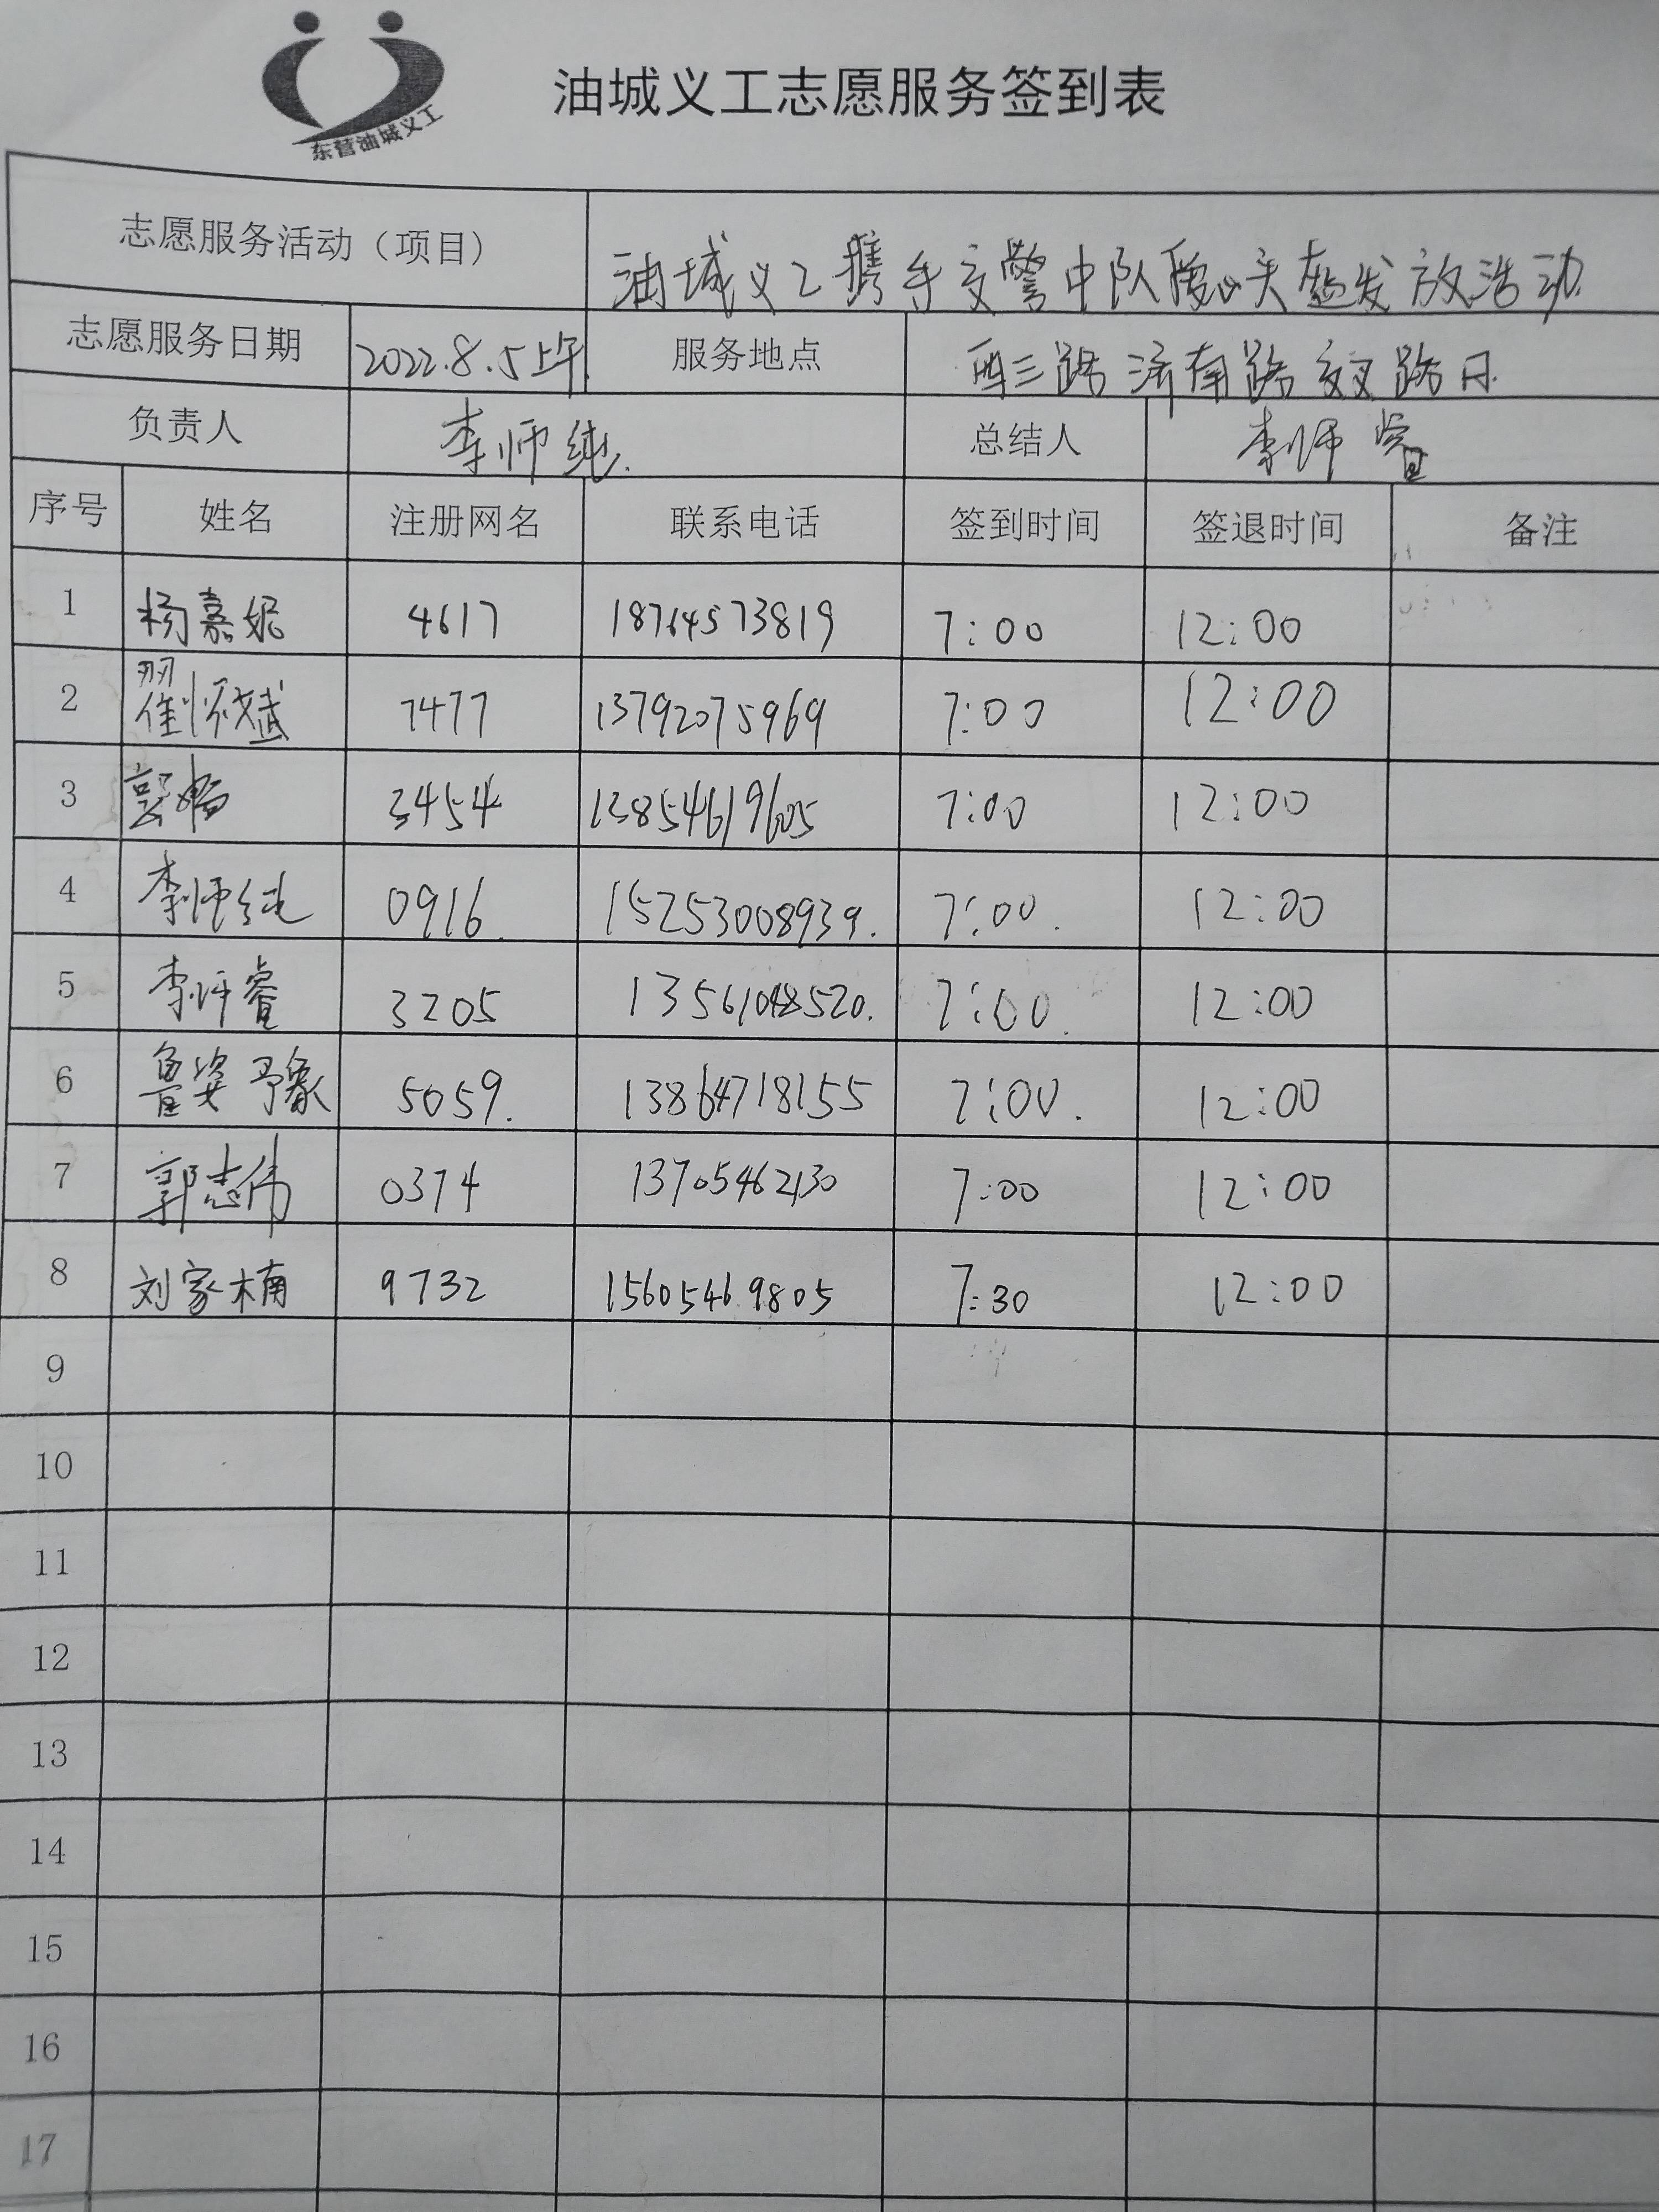 东营油城义工
油城义工志愿服务签到表
志愿服务活动（项目） 油城义工携手交警中队爱心头盔发放活动
志愿服务日期 2022.8.5上午 服务地点 西三路济南路交叉路口
负责人 李师纯 总结人 李师睿
序号 姓名 注册网名 联系电话 签到时间 签退时间 备注
1 杨嘉妮 4617 18764573819 7:00 12:00
2 翟怀斌 7477 13792075969 7:00 12:00
3 3454 13854619605 7:00 12:00
4 李师纯 0916. 15253008939. 7:00. 12:00
5 李师睿 3205 13561048520. 7:00. 12:00
6 鲁姿予 5059. 13864718155 7:00. 12:00
7 郭志伟 0374 13705462130 7:00 12:00
8 刘家楠 9732 15605469805 7:30 12:00
9
10
11
12
13
14
15
16
17